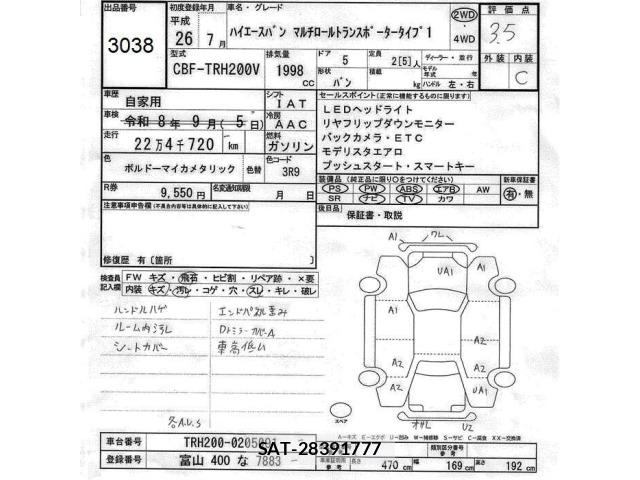 出品番号 初度登録年月 車名・グレード 評価点
3038 平成 26年 7月 ハイエースバン マルチロールトランスポータータイプ1 2WD・4WD 3.5
型式 排気量 ドア 5 定員 2[5]人 ディーラー・並行 外装 内装
CBF-TRH200V 1998cc 形状 バン 積載 kg モデル年式 年式 ハンドル 左・右 C
車歴 自家用 シフト IAT セールスポイント(正常に機能するものに限ります)
車検 令和 8年 9月( 5日) 冷房 AAC LEDヘッドライト
リヤフリップダウンモニター
走行 22万4千720 km 燃料 ガソリン バックカメラ・ETC
モデリスタエアロ
色 ボルドーマイカメタリック 色替 色コード 3R9 プッシュスタート・スマートキー
R券 9,550円 名変通知期限 月 日 装備品(純正品に限り○をつけてください) 新車保証書
PS PW ABS エアB AW 有・無
SR ナビ TV カワ
注意事項申告欄(不具合内容等は具体的に記入して下さい) 後日品 保証書・取説
修復歴 有〔箇所 〕
検査員記入欄 FW キズ・飛石・ヒビ割・リペア跡・×要
内装 キズ・汚レ・コゲ・穴・スレ・キレ・破レ
ハンドルハゲ エンドパネル歪み
ルーム内汚レ Dトミラーカバー A
シートカバー 車高低い
各A.U.S
A1 ワレ
UA1
A1 A1
A2 A2
A2 UA1
スペア オサレ U2
A−キズ E−エクボ U−凹み W−補修跡 S−サビ C−腐食 XX−交換済
車台番号 TRH200-0205091 型式指定番号 類別区分番号
SAT-28391777
登録番号 富山 400 な 7883 参考 長さ 470cm 幅 169cm 高さ 192cm